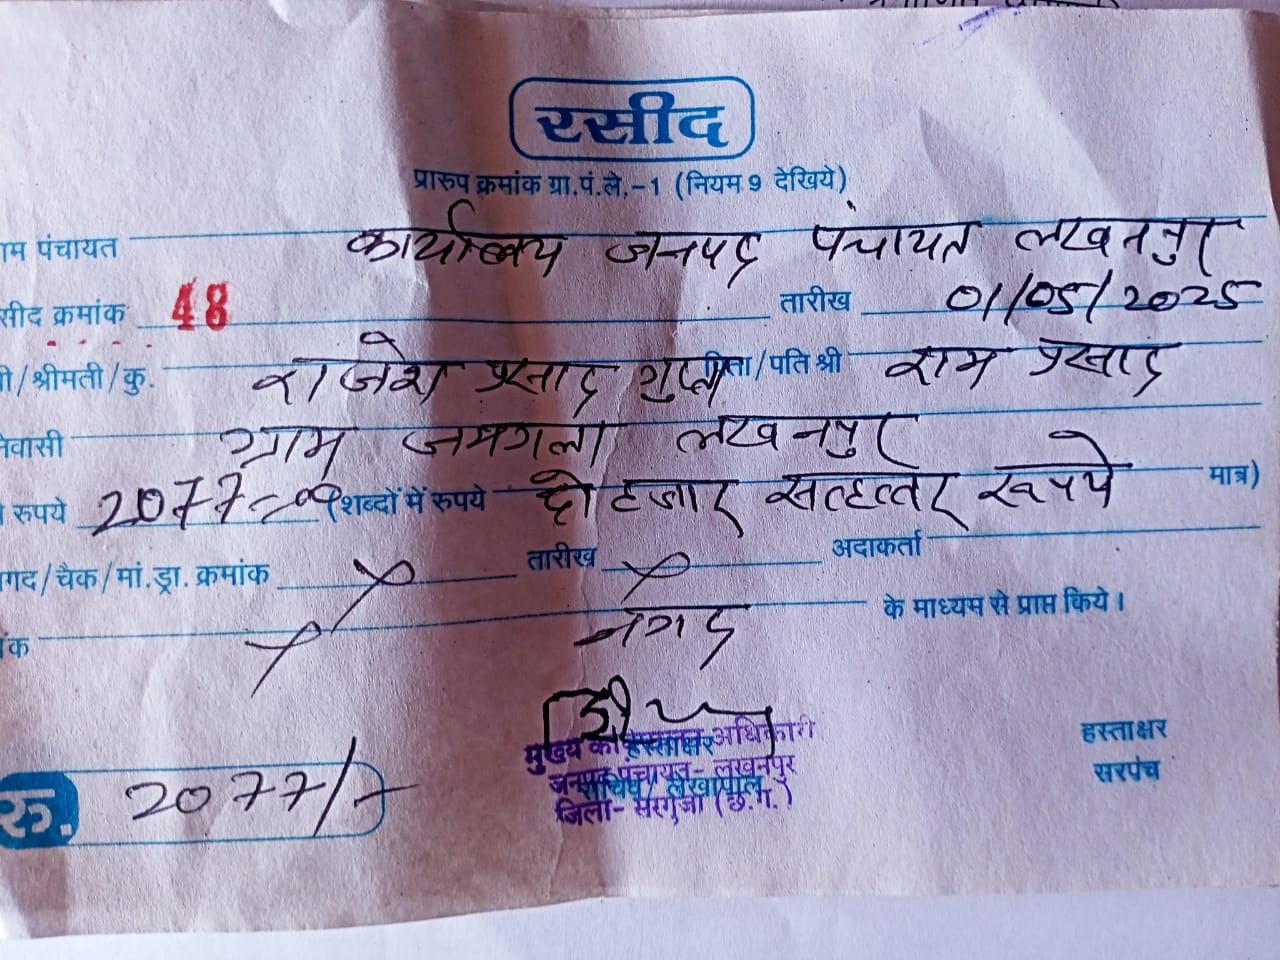 रसीद
प्रारुप क्रमांक ग्रा.पं.ले.-1 (नियम 9 देखिये)
ाम पंचायत कार्यालय जनपद पंचायत लखनपुर
सीद क्रमांक 48 तारीख 01/05/2025
ी/श्रीमती/कु. राजेश प्रसाद गुप्ता पिता/पति श्री राम प्रसाद
निवासी ग्राम जमगला लखनपुर
रुपये 2077=00 (शब्दों में रुपये दो हजार सतहत्तर रूपये मात्र)
नगद/चैक/मां.ड्रा. क्रमांक तारीख अदाकर्ता
ंक नगद के माध्यम से प्राप्त किये।
मुख्य कार्यपालन अधिकारी
हस्ताक्षर
जनपद पंचायत- लखनपुर
सचिव/लेखापाल
जिला- सरगुजा (छ.ग.)
हस्ताक्षर
सरपंच
रु. 2077/-